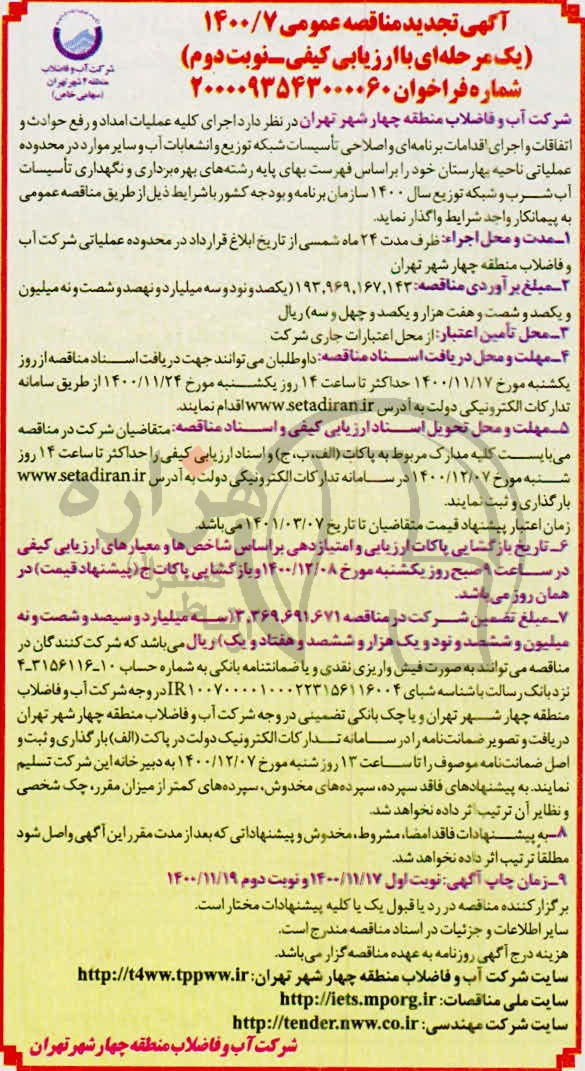 آگهی تجدید مناقصه عمومی ۱۴۰۰/۷
(یک مرحله‌ای با ارزیابی کیفی-نوبت دوم)
شماره فراخوان ۲۰۰۰۰۹۳۵۴۳۰۰۰۰۶۰
شرکت آب و فاضلاب
منطقه ۴ شهر تهران
(سهامی خاص)
شرکت آب و فاضلاب منطقه چهار شهر تهران در نظر دارد اجرای کلیه عملیات امداد و رفع حوادث و
اتفاقات و اجرای اقدامات برنامه‌ای و اصلاحی تأسیسات شبکه توزیع و انشعابات آب و سایر موارد در محدوده
عملیاتی ناحیه بهارستان خود را بر اساس فهرست بهای پایه رشته‌های بهره‌برداری و نگهداری تأسیسات
آب شرب و شبکه توزیع سال ۱۴۰۰ سازمان برنامه و بودجه کشور با شرایط ذیل از طریق مناقصه عمومی
به پیمانکار واجد شرایط واگذار نماید.
۱-مدت و محل اجراء: ظرف مدت ۲۴ ماه شمسی از تاریخ ابلاغ قرارداد در محدوده عملیاتی شرکت آب
و فاضلاب منطقه چهار شهر تهران
۲-مبلغ برآوردی مناقصه: ۱۹۳,۹۶۹,۱۶۷,۱۴۳ (یکصد و نود و سه میلیارد و نهصد و شصت و نه میلیون
و یکصد و شصت و هفت هزار و یکصد و چهل و سه) ریال
۳-محل تأمین اعتبار: از محل اعتبارات جاری شرکت
۴-مهلت و محل دریافت اسناد مناقصه: داوطلبان می‌توانند جهت دریافت اسناد مناقصه از روز
یکشنبه مورخ ۱۴۰۰/۱۱/۱۷ حداکثر تا ساعت ۱۴ روز یکشنبه مورخ ۱۴۰۰/۱۱/۲۴ از طریق سامانه
تدارکات الکترونیکی دولت به آدرس www.setadiran.ir اقدام نمایند.
۵-مهلت و محل تحویل اسناد ارزیابی کیفی و اسناد مناقصه: متقاضیان شرکت در مناقصه
می‌بایست کلیه مدارک مربوط به پاکات (الف، ب، ج) و اسناد ارزیابی کیفی را حداکثر تا ساعت ۱۴ روز
شنبه مورخ ۱۴۰۰/۱۲/۰۷ در سامانه تدارکات الکترونیکی دولت به آدرس www.setadiran.ir
بارگذاری و ثبت نمایند.
زمان اعتبار پیشنهاد قیمت متقاضیان تا تاریخ ۱۴۰۱/۰۳/۰۷ می‌باشد.
۶-تاریخ بازگشایی پاکات ارزیابی و امتیازدهی بر اساس شاخص‌ها و معیارهای ارزیابی کیفی
در ساعت ۹ صبح روز یکشنبه مورخ ۱۴۰۰/۱۲/۰۸ و بازگشایی پاکات ج (پیشنهاد قیمت) در
همان روز می‌باشد.
۷-مبلغ تضمین شرکت در مناقصه ۳,۳۶۹,۶۹۱,۶۷۱ (سه میلیارد و سیصد و شصت و نه
میلیون و ششصد و نود و یک هزار و ششصد و هفتاد و یک) ریال می‌باشد که شرکت کنندگان در
مناقصه می‌توانند به صورت فیش واریزی نقدی و یا ضمانتنامه بانکی به شماره حساب ۱۰-۳۱۵۶۱۱۶-۴
نزد بانک رسالت با شناسه شبای IR۱۰۰۷۰۰۰۰۱۰۰۰۲۲۳۱۵۶۱۱۶۰۰۴ در وجه شرکت آب و فاضلاب
منطقه چهار شهر تهران و یا چک بانکی تضمینی در وجه شرکت آب و فاضلاب منطقه چهار شهر تهران
دریافت و تصویر ضمانت‌نامه را در سامانه تدارکات الکترونیک دولت در پاکت (الف) بارگذاری و ثبت و
اصل ضمانت‌نامه موصوف را تا ساعت ۱۳ روز شنبه مورخ ۱۴۰۰/۱۲/۰۷ به دبیرخانه این شرکت تسلیم
نمایند. به پیشنهادهای فاقد سپرده، سپرده‌های مخدوش، سپرده‌های کمتر از میزان مقرر، چک شخصی
و نظایر آن ترتیب اثر داده نخواهد شد.
۸-به پیشنهادات فاقد امضا، مشروط، مخدوش و پیشنهاداتی که بعد از مدت مقرر این آگهی واصل شود
مطلقاً ترتیب اثر داده نخواهد شد.
۹-زمان چاپ آگهی: نوبت اول ۱۴۰۰/۱۱/۱۷ و نوبت دوم ۱۴۰۰/۱۱/۱۹
برگزار کننده مناقصه در رد یا قبول یک یا کلیه پیشنهادات مختار است.
سایر اطلاعات و جزئیات در اسناد مناقصه مندرج است.
هزینه درج آگهی روزنامه به عهده مناقصه‌گزار می‌باشد.
سایت شرکت آب و فاضلاب منطقه چهار شهر تهران: http://t4ww.tppww.ir
سایت ملی مناقصات: http://iets.mporg.ir
سایت شرکت مهندسی: http://tender.nww.co.ir
شرکت آب و فاضلاب منطقه چهار شهر تهران